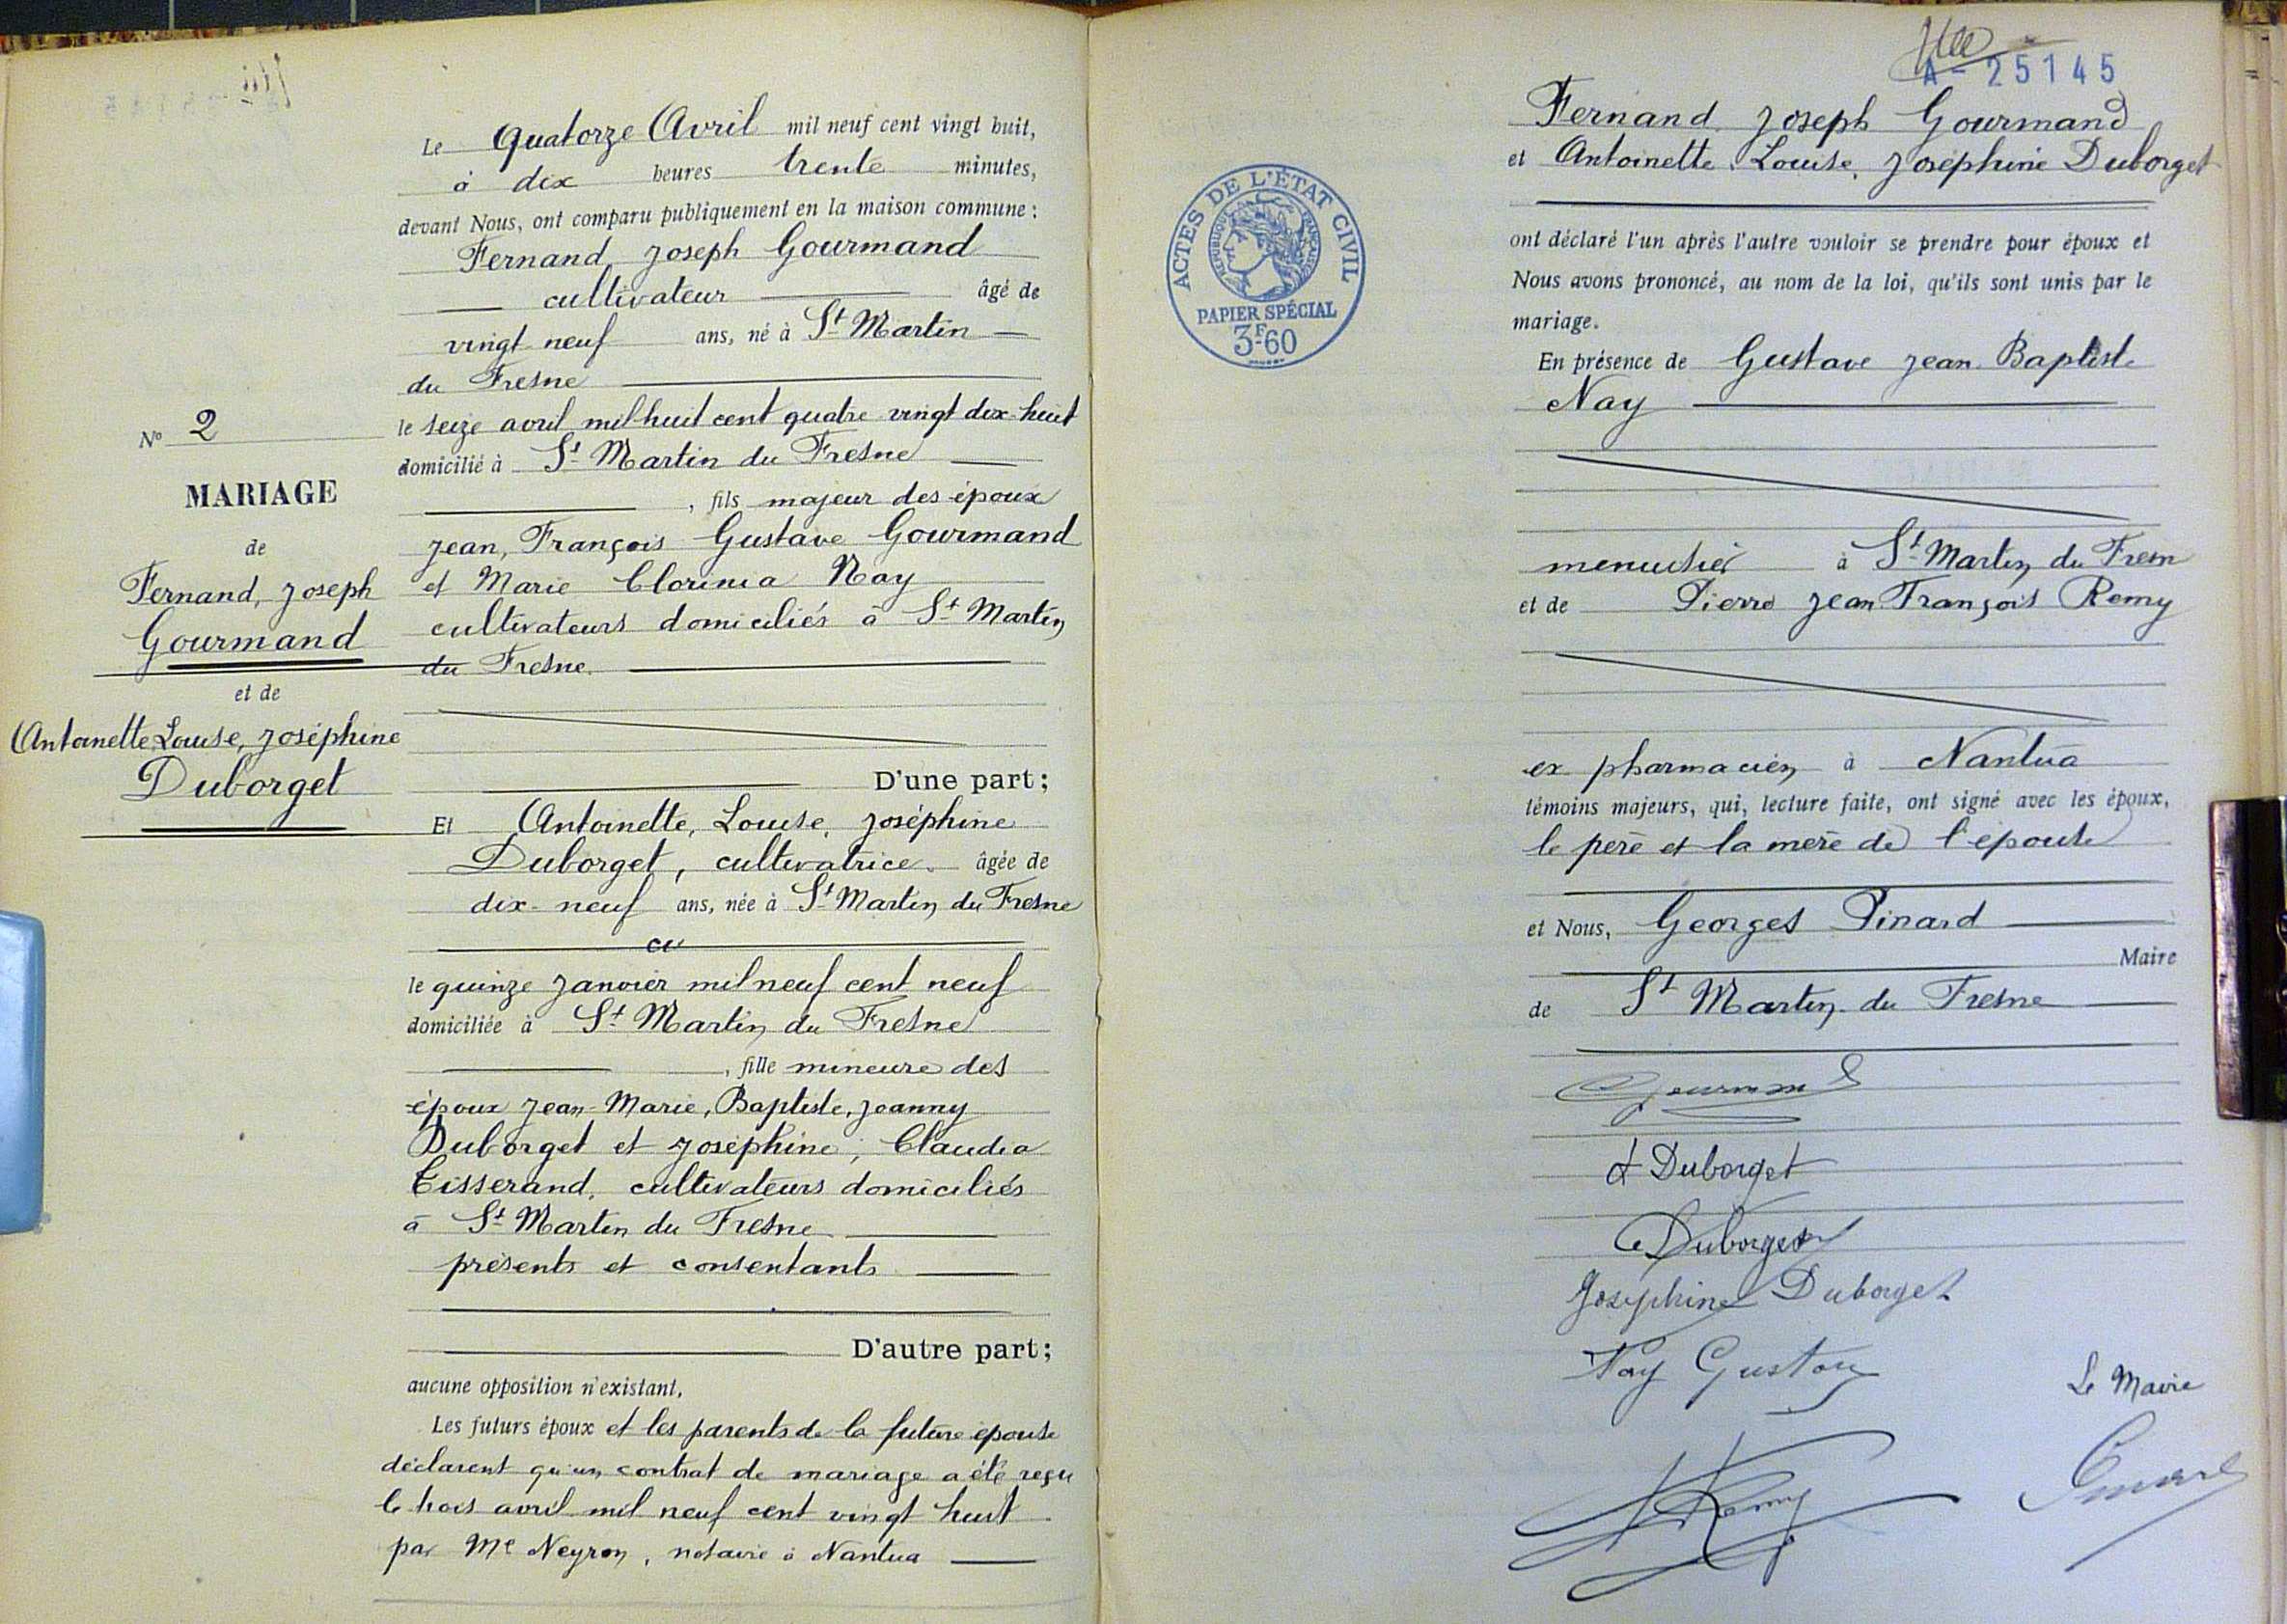 N° 2
MARIAGE
de
Fernand, Joseph
Gourmand
et de
Antoinette, Louise, Joséphine
Duborget
Le Quatorze Avril mil neuf cent vingt huit,
à dix heures trente minutes,
devant Nous, ont comparu publiquement en la maison commune :
Fernand, Joseph Gourmand
cultivateur âgé de
vingt neuf ans, né à St Martin
du Fresne
le seize avril mil huit cent quatre vingt dix-huit
domicilié à St Martin du Fresne
, fils majeur des époux
Jean, François Gustave Gourmand
et Marie Clorinia Nay
cultivateurs domiciliés à St Martin
du Fresne.
D'une part ;
Et Antoinette, Louise, Joséphine
Duborget, cultivatrice. âgée de
dix-neuf ans, née à St Martin du Fresne
le quinze Janvier mil neuf cent neuf
domiciliée à St Martin du Fresne
, fille mineure des
époux Jean-Marie, Baptiste, Joanny
Duborget et Joséphine, Claudia
Tisserand, cultivateurs domiciliés
à St Martin du Fresne
présents et consentants
D'autre part ;
aucune opposition n'existant,
Les futurs époux et les parents de la future épouse
déclarent qu'un contrat de mariage a été reçu
le trois avril mil neuf cent vingt huit
par Me Neyron, notaire à Nantua
ACTES DE L'ÉTAT CIVIL
RÉPUBLIQUE FRANÇAISE
PAPIER SPÉCIAL
3F60
A-25145
Fernand, Joseph Gourmand
et Antoinette, Louise, Joséphine Duborget
ont déclaré l'un après l'autre vouloir se prendre pour époux et
Nous avons prononcé, au nom de la loi, qu'ils sont unis par le
mariage.
En présence de Gustave Jean-Baptiste
Nay
menuisier à St Martin du Fresn
et de Pierre Jean François Remy
ex pharmacien à Nantua
témoins majeurs, qui, lecture faite, ont signé avec les époux,
le père et la mère de l'épouse
et Nous, Georges Pinard
Maire
de St Martin du Fresne
Gourmand
L Duborget
Duborget
Joséphine Duborget
Nay Gustave
Le Maire
Remy
Pinard